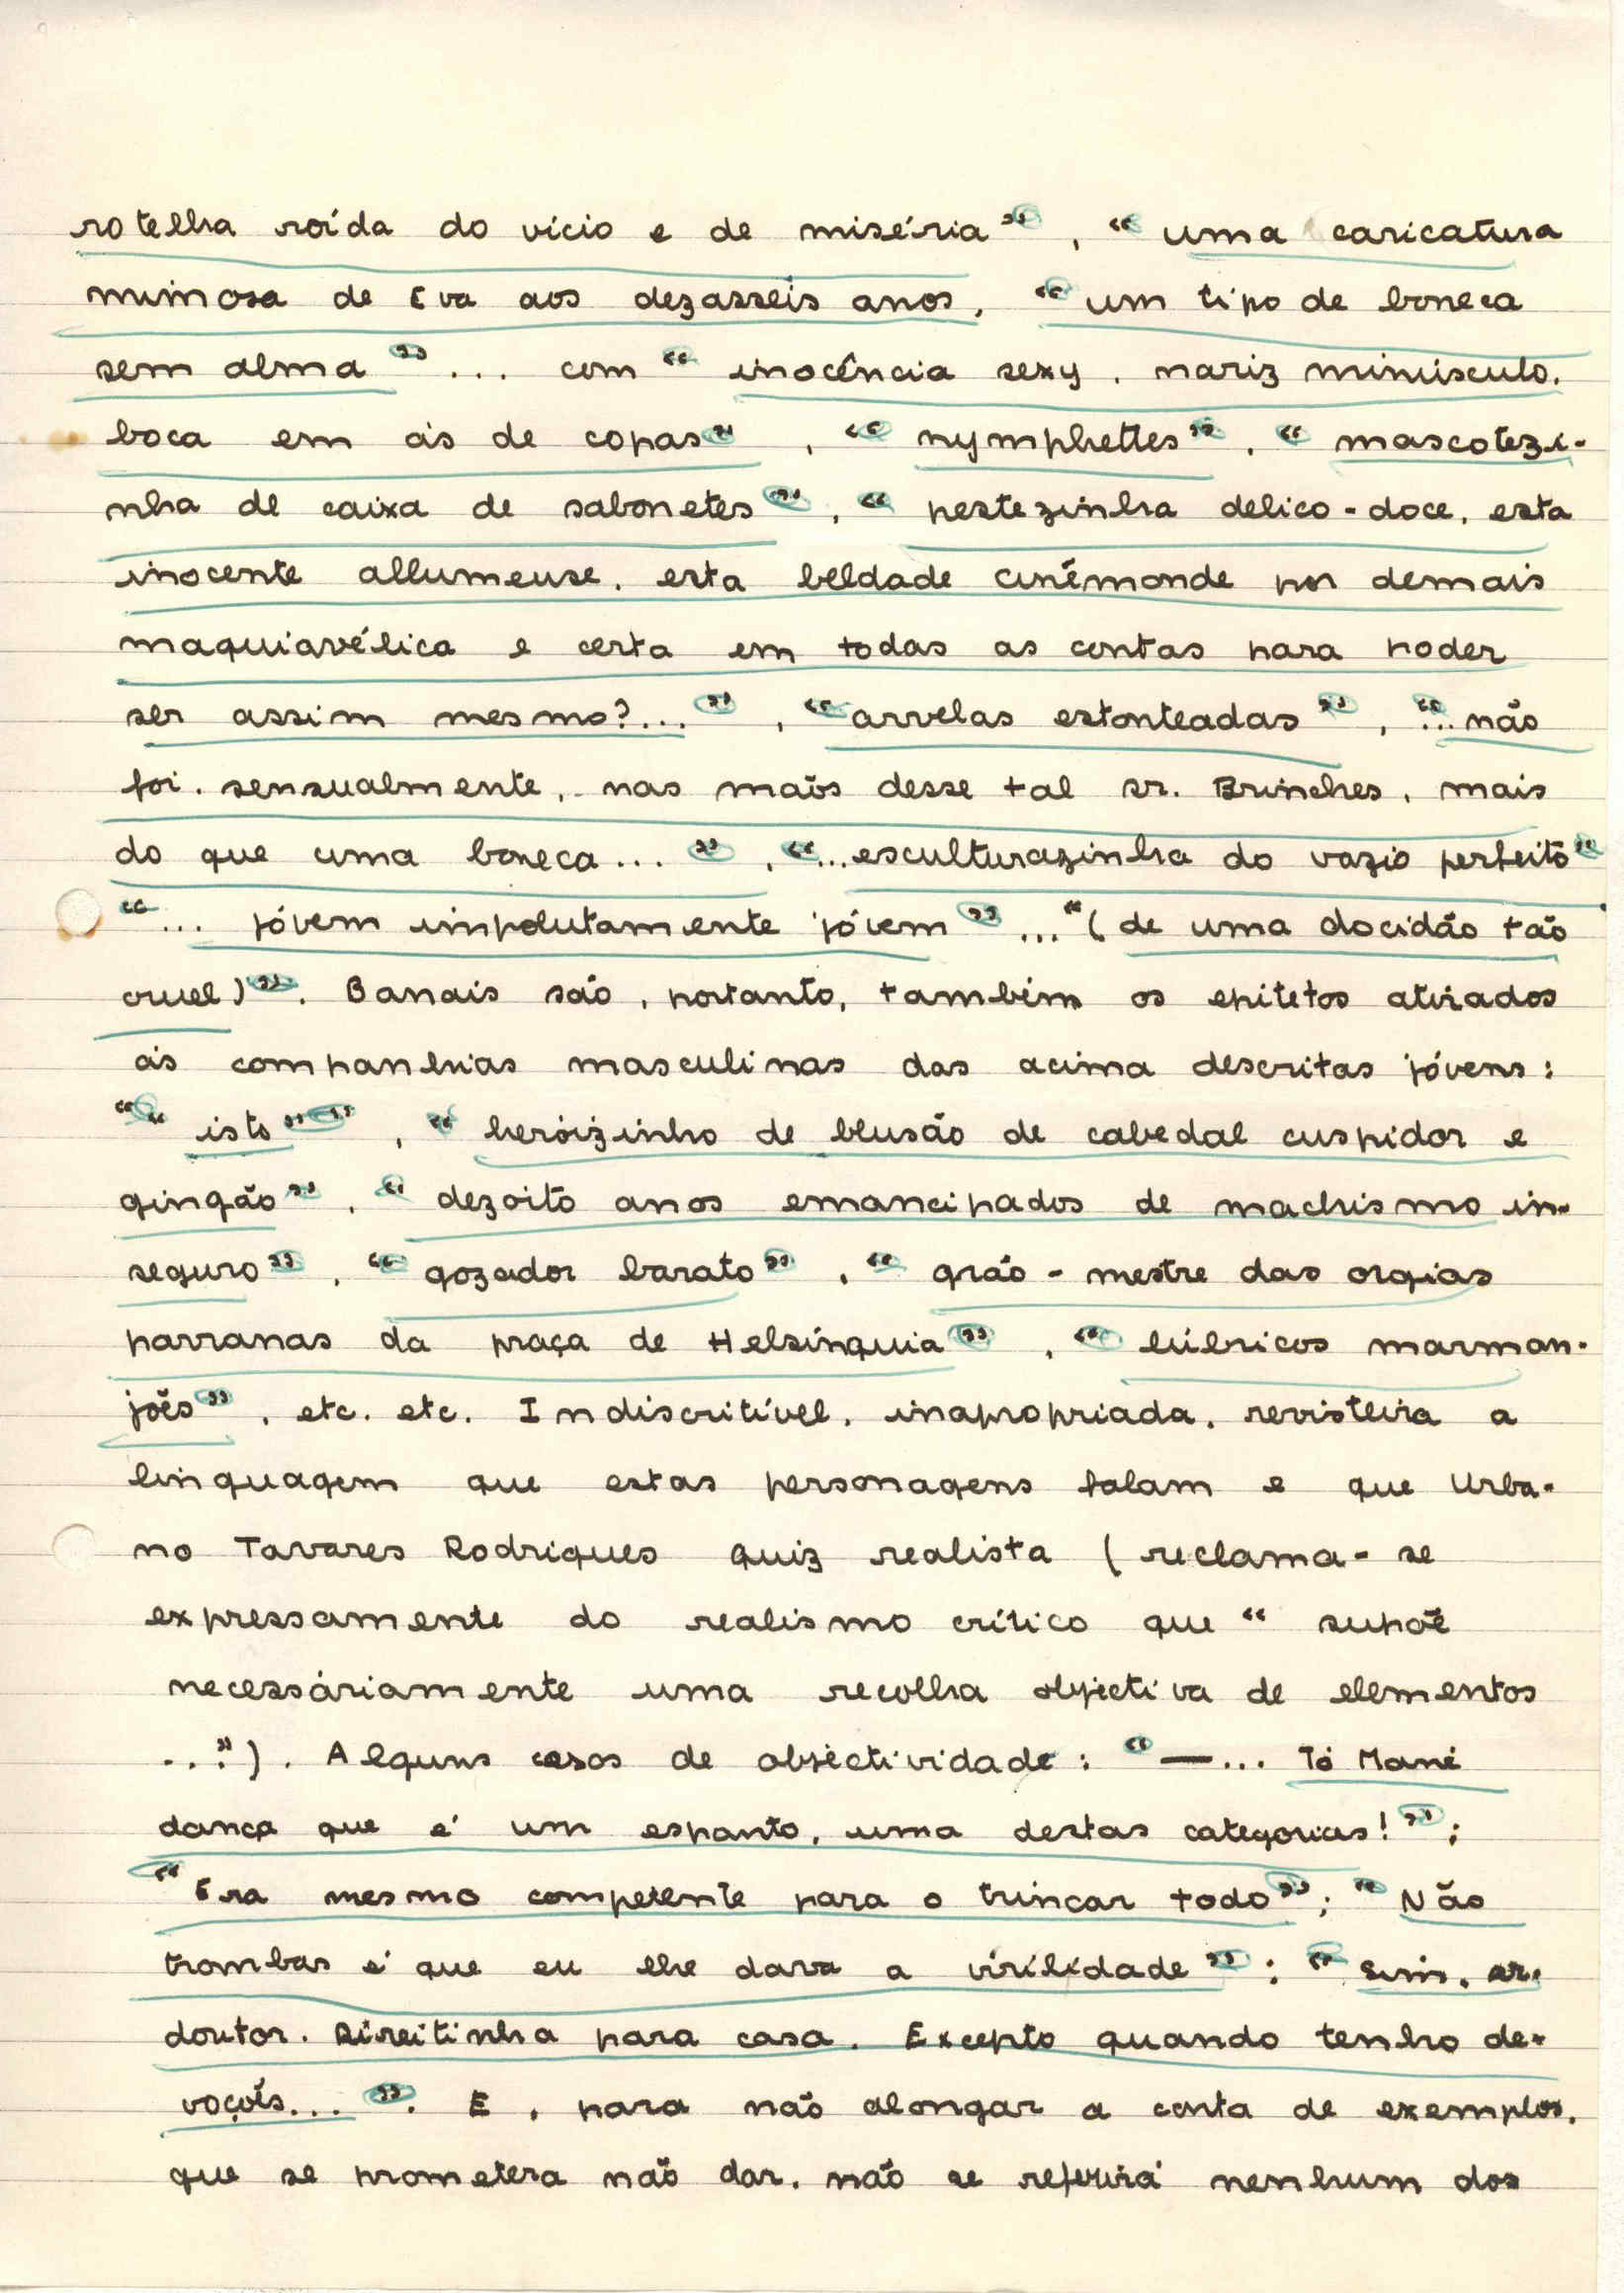 rotelha roída do vício e de miséria", "uma caricatura
mimosa de Eva aos dezasseis anos, "um tipo de boneca
sem alma"... com "inocência sexy, nariz minúsculo,
boca em ás de copas", "nymphettes", "mascotezi-
nha de caixa de sabonetes", "pestezinha delico-doce, esta
inocente allumeuse, esta beldade cinémonde por demais
maquiavélica e certa em todas as contas para poder
ser assim mesmo?...", "arvelas estonteadas", "...não
foi, sensualmente, nas maõs desse tal sr. Brinches, mais
do que uma boneca...", "...esculturazinha do vazio perfeito"
"... jóvem impolutamente jóvem"..."(de uma docidão tão
cruel)". Banais são, portanto, também os epitetos atirados
ás companhias masculinas das acima descritas jóvens:
""isto"", "heróizinho de blusão de cabedal cuspidor e
gingão", "dezoito anos emancipados de machismo in-
seguro", "gozador barato", "grão-mestre das orgias
parranas da praça de Helsínquia", "lúbricos marman-
jões", etc. etc. Indiscritível, inapropriada, revisteira a
linguagem que estas personagens falam e que Urba-
no Tavares Rodrigues quiz realista (reclama-se
expressamente do realismo crítico que "supõe
necessáriamente uma recolha objectiva de elementos
..."). Alguns casos de objectividade: "—... Tó Mané
dança que é um espanto, uma destas categorias!";
"Era mesmo competente para o trincar todo"; "Não
trombas é que eu lhe dava a virilidade"; "Sim, sr.
doutor. Direitinha para casa. Excepto quando tenho de-
voções...". E, para não alongar a conta de exemplos,
que se prometera não dar, não se referirá nenhum dos